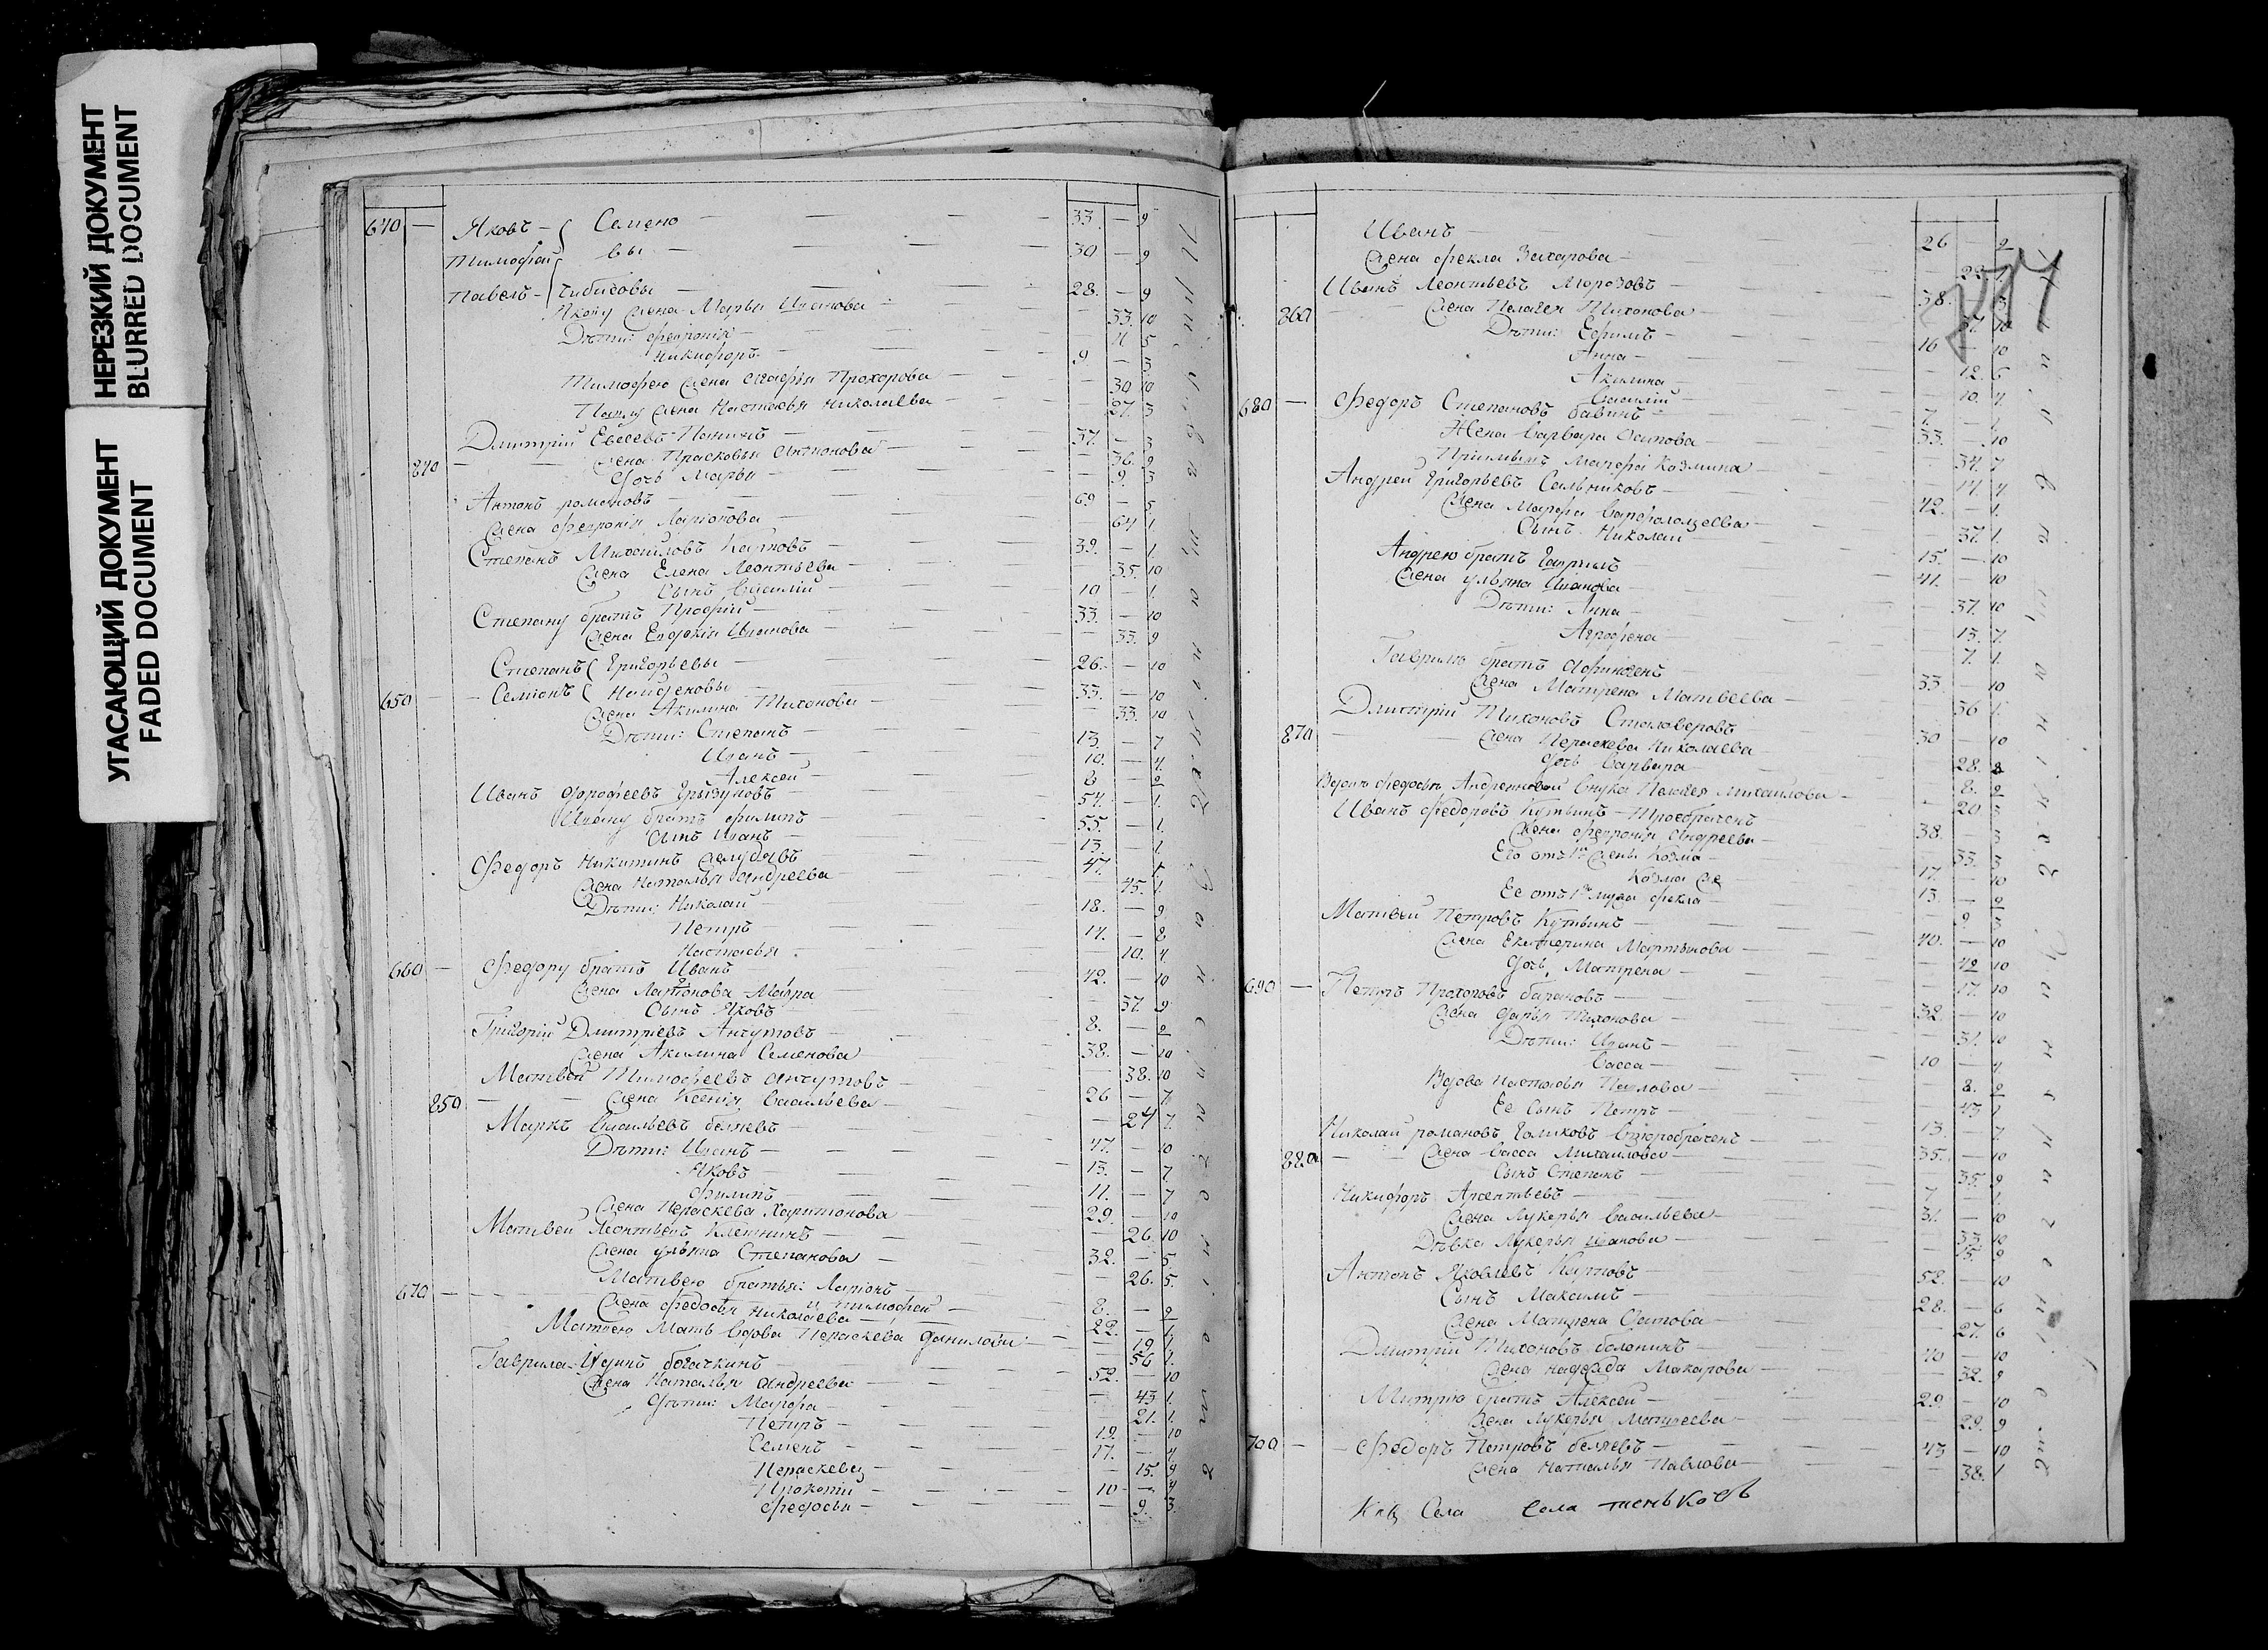 НЕРЕЗКИЙ ДОКУМЕНТ
BLURRED DOCUMENT
УГАСАЮЩИЙ ДОКУМЕНТ
FADED DOCUMENT
640 — Яковъ — Семено 33 — 9
Тимофей вы 30 — 9
Павелъ — Чибисовы 28. — 9
Якову жена Марья Иванова 33. 10
Дѣти: Феврония 11 5
Никифоръ 9 — 3
Тимофею жена Агафья Прохорова 30 10
Павлу жена Настасья Николаева 27. 3
Дмитрій Евсеевъ Панинъ 37. — 3
840 жена Прасковья Антонова 36. 9
дочь Марья 9. 3
Антонъ романовъ 69 — 5
жена Феврония Ларионова 64 1.
Степанъ Михайловъ Карповъ 39. — 1.
жена Елена Леонтьева 35. 10
Сынъ Василій 10 — 1.
Степану братъ Профій 33. — 10
жена Евдокія Иванова 33. 9
Степанъ Григорьевы 26. — 10
650 — Семіонъ Найденовы 33. — 10
жена Акилина Тихонова 33. 10
Дѣти: Степанъ 13. — 7
Иванъ 10. — 4.
Алексей 8 — 2
Иванъ Дорофеевъ Грызуловъ 54. — 1.
Ивану братъ Филипъ 55. — 1.
Сынъ Иванъ 13. — 1.
Федоръ Никитинъ 47. 1.
жена Наталья Андреева 45. 1.
Дѣти: Николай 18. — 9
Петръ 14. — 8
Настасья 10. 4
660 — Федору братъ Иванъ 42. — 10
жена Мавра 37. 9
Сынъ Яковъ 8. — 2
Григорій Дмитріевъ Анчутовъ 38. — 10
жена Акилина Семенова 38. 10
Матвей Тимофеевъ Анчутовъ 26 — 7.
850 жена Ксенія Васильева 24 7.
Маркъ Васильевъ беляевъ 47. — 10
Дѣти: Иванъ 13. — 7
Яковъ 11. — 7
Филипъ 29. — 10
жена Пераскева Харитонова 26. 10
Матвей Леонтьевъ Клетнинъ 32. — 5
жена ульяна Степанова 26. 5.
670 Матвею братья: Ларионъ 8. — 2
и тимофей 22. — 1.
жена Федосья Николаева 19. 1.
Матвею Мать вдова Пераскева данилова 56 1.
Гаврила Юдинъ богаткинъ 52. — 10
жена Наталья Андреева 43 1.
дѣти: Марфа 21. 1.
Петръ 19. — 10
Семенъ 17. — 4.
Пераскева 15. 9
Прокопій 10 — 4
Федосья 9. 3.
Иванъ 26 2
жена Фекла Захарова
Иванъ Леонтьевъ Морозовъ 38. 3
860 жена Пелагея Тихонова 37. 10
Дѣти: Ефимъ 16 — 10
Анна 12. 6
Акилина 10. 4
Василій 7. 1.
680 — Федоръ Степановъ бабинъ 33. 10
Жена Варвара Осипова 34. 7
Марфа Козмина 14. 4
Андрей Григорьевъ Сальниковъ 42. — 1.
жена Марфа Варфоломеева 37. 1.
Сынъ Николай 15. — 10
Андрею братъ Гаврилъ 41. 10
жена ульяна Иванова 37. 10
Дѣти: Анна 13. 7.
Агрофена 7. 1.
Гаврилѣ братъ Афиногенъ 33 — 10
жена Матрена Матвеева 36 1.
Дмитрій Тихоновъ Столоверовъ 30 — 10
870 жена Пераскева Николаева 28. 8
дочь Варвара 8. 2
внука Пелагея Михаилова 20 3
Иванъ Федоровъ Кутьинъ — Троебраченъ 38. 3
жена Феврония Андреева 33. 3
Его отъ 1й жены Козма 17. 10
Козма же 13 — 2
Ее отъ 1го мужа Фекла 9 3
Матвей Петровъ Кутьинъ 40. — 10
жена Екатерина Мартынова 42 10
дочь Матрена 17. 10
690 — Петръ Прохоровъ барановъ 32. — 10
жена дарья Тихонова 31. 10
Дѣти: Иванъ 10 — 4
Васса 8. 2
Вдова Настасья Павлова 43 1
Ее Сынъ Петръ 13. — 7
Николай романовъ Голиковъ Второбраченъ 35. — 10
880 жена Васса Михаилова 35. 9
Сынъ Степанъ 7 — 1.
Никифоръ Арсентьевъ 31. — 10
жена Лукерья Васильева 33. 10
Дѣвка Лукерья Иванова 15. 9
Антонъ Яковлевъ Карповъ 52. — 10
Сынъ Максимъ 28. — 6
жена Матрена Осипова 27. 6
Дмитрій Тихоновъ 40 — 10
жена надежда Макарова 32. 9
Митрію братъ Алексей 29 — 10
жена Лукерья Матвеева 29. 9
700 — Федоръ Петровъ беляевъ 43 — 10
жена Наталья Павлова 38. 1
Села Села теньковъ